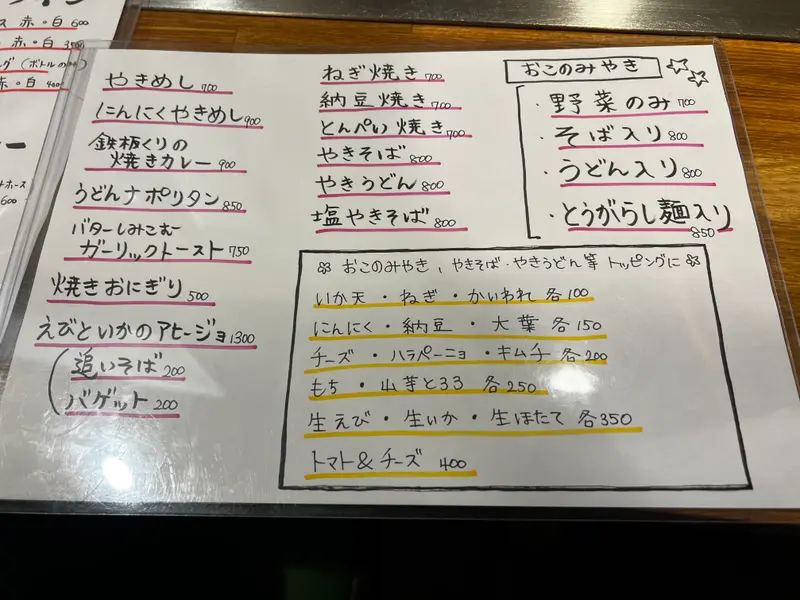 赤・白 600
赤・白
(ボトルの
赤・白
600
やきめし 700
にんにくやきめし 900
鉄板くりの
焼きカレー 900
うどんナポリタン 850
バターしみこむ
ガーリックトースト 750
焼きおにぎり 500
えびといかのアヒージョ 1300
追いそば 200
バゲット 200
ねぎ焼き 700
納豆焼き 700
とんぺい焼き 700
やきそば 800
やきうどん 800
塩やきそば 800
おこのみやき
・野菜のみ 700
・そば入り 800
・うどん入り 800
・とうがらし麺入り
850
おこのみやき、やきそば・やきうどん等 トッピングに
いか天・ねぎ・かいわれ 各100
にんにく・納豆・大葉 各150
チーズ・ハラペーニョ・キムチ 各200
もち・山芋とろろ 各250
生えび・生いか・生ほたて 各350
トマト&チーズ 400